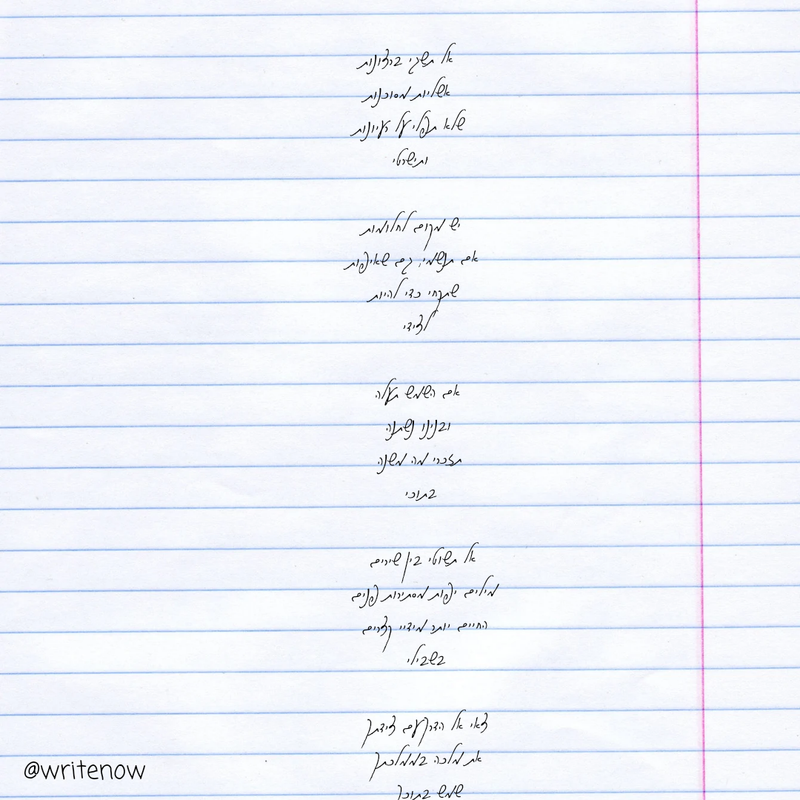 אל תשגי ברצונות
אשליות מסוכנות
שלא תפלי על רעיונות
ותישרטי
יש מקום לחלומות
אם תגשמי, גם שאיפות
שתקחי כדי להיות
לצידי
אם השמש תעלה
ובנינו נשתנה
תזכרי מה משנה
בתוכי
אל תשוטי בין שירים
מילים יפות מסתירות פנים
החיים יותר מידיי קצרים
בשבילי
צאי אל הדרך עם צידתך
את מלכה בממלכתך
שמש בתוכך
@writenow